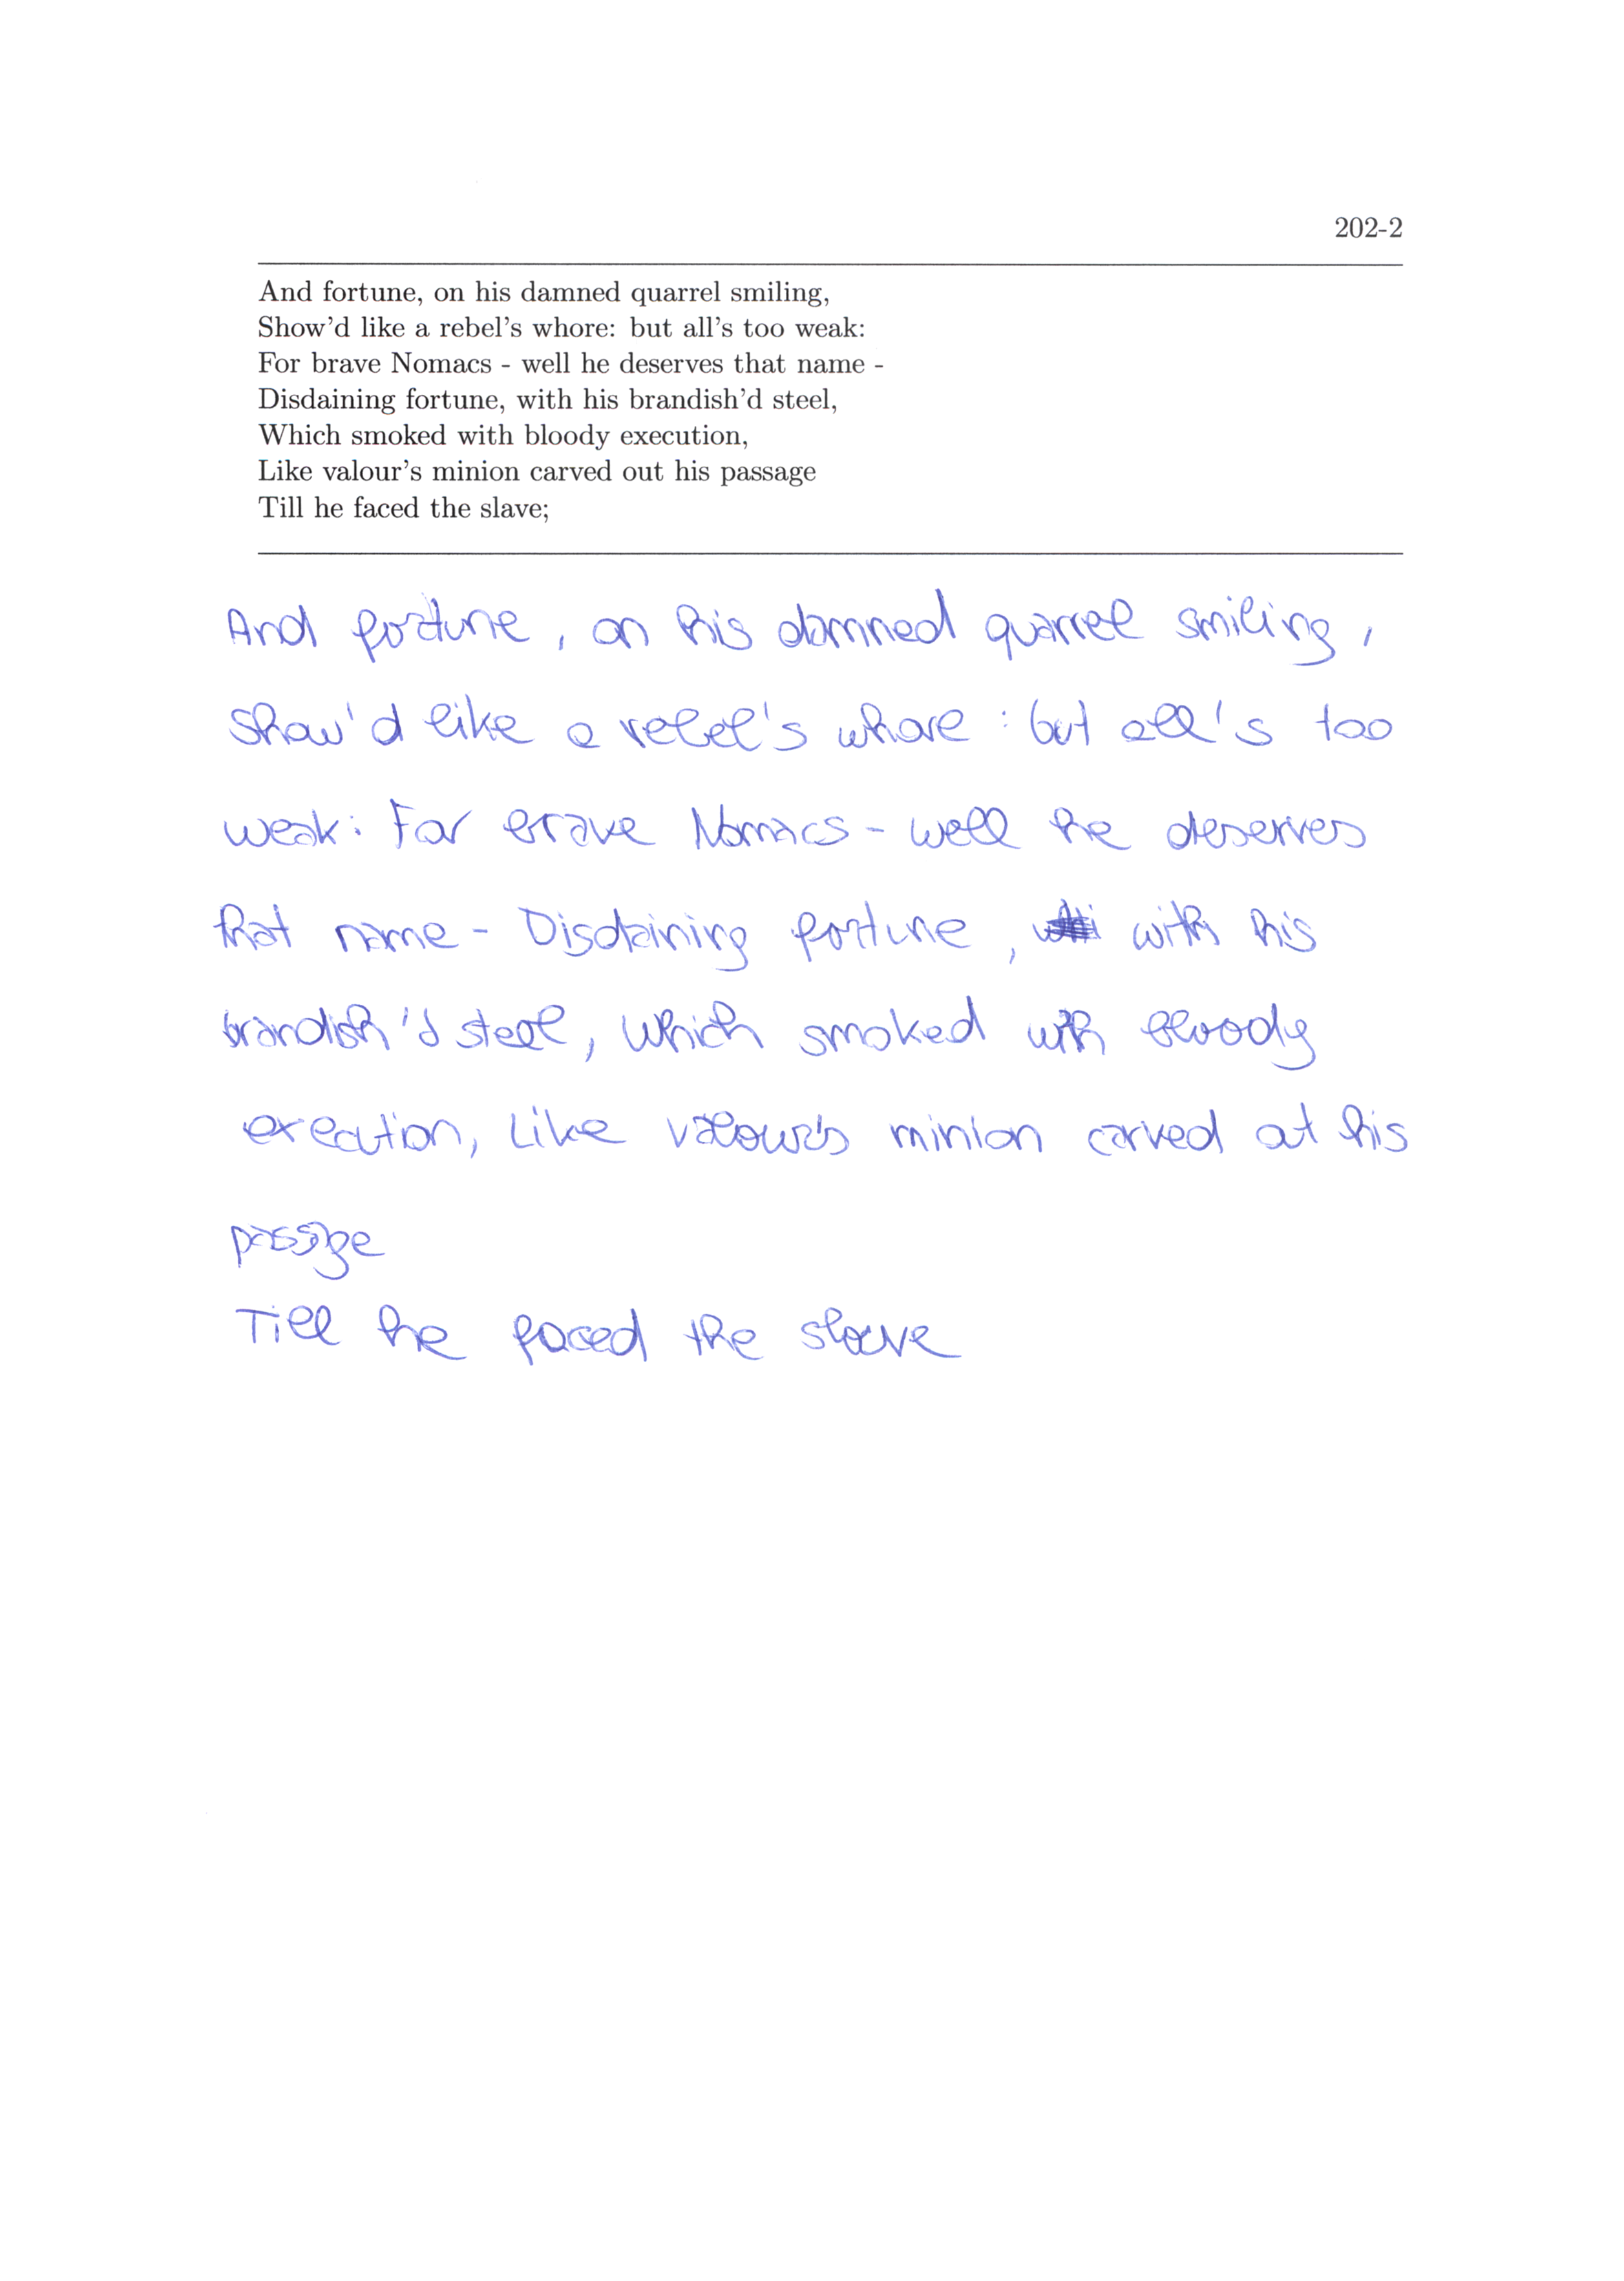 202-2
And fortune, on his damned quarrel smiling,
Show'd like a rebel's whore: but all's too weak:
For brave Nomacs - well he deserves that name -
Disdaining fortune, with his brandish'd steel,
Which smoked with bloody execution,
Like valour's minion carved out his passage
Till he faced the slave;
And fortune, on his damned quarrel smiling,
Show'd like a rebel's whore: but all's too
weak: For brave Nomacs - well he deserves
that name - Disdaining fortune, with his
brandish'd steel, Which smoked with bloody
execution, Like valour's minion carved out his
passage
Till he faced the slave